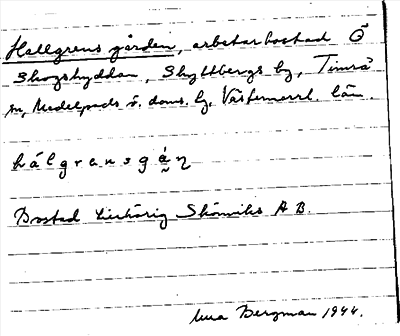 Hallgrens gården, arbetarbostad Ö
Skogshyddan, Skyttbergs by, Timrå
sn, Medelpads v. doms. hg, Västernorrl. län.
hálgransgá̰ꞃ
Bostad tillhörig Skönviks A B.
Bergman 1944.